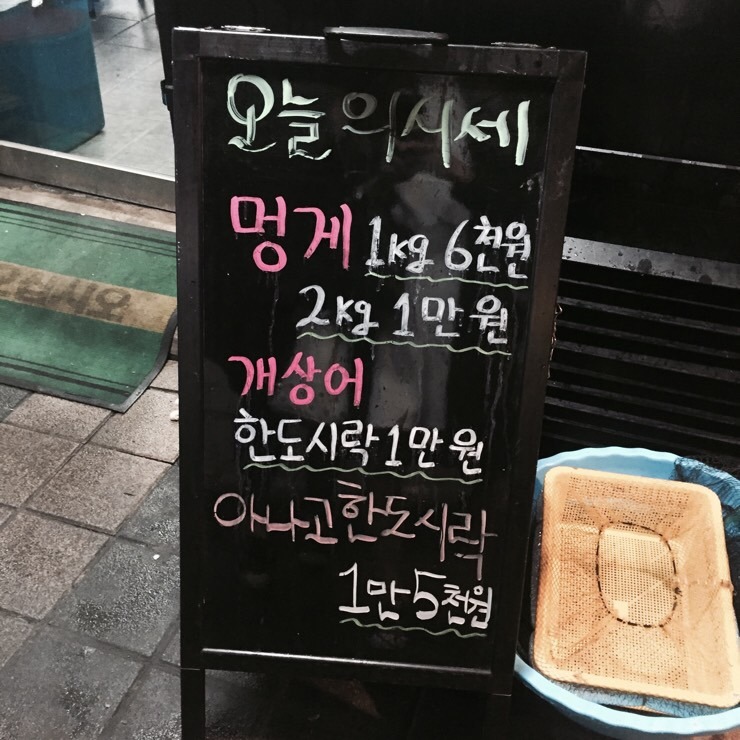 오늘의시세
멍게 1kg 6천원
2kg 1만원
개상어
한도시락 1만원
아나고한도시락
1만 5천원